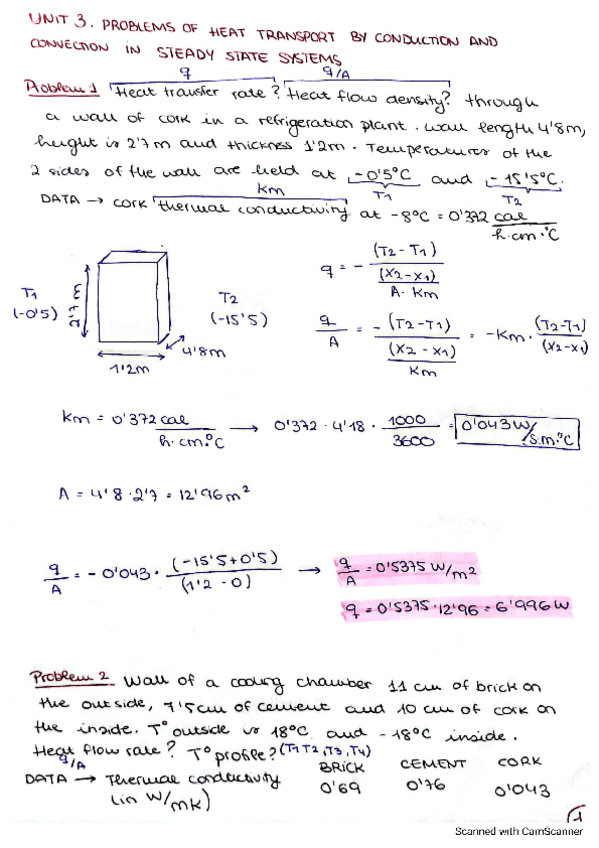 UNIT 3. PROBLEMS OF HEAT TRANSPORT BY CONDUCTION AND
CONVECTION IN STEADY STATE SYSTEMS
q q/A
Problem 1 Heat transfer rate? Heat flow density? through
a wall of cork in a refrigeration plant. Wall length 4'8m,
height is 2'7m and thickness 1'2m. Temperatures of the
2 sides of the wall are held at -0'5°C and -15'5°C.
Km T1 T2
DATA → cork thermal conductivity at -8°C = 0'372 cal
h·cm·°C
q = - (T2-T1)
(x2-x1)
A·Km
T1
(-0'5)
2'7m
T2
(-15'5)
4'8m
1'2m
q/A = -(T2-T1) = -Km· (T2-T1)
(x2-x1) (x2-x1)
Km
Km = 0'372 cal → 0'372 · 4'18 · 1000 = 0'043 W
h·cm·°C 3600 /s.m.°C
A = 4'8 · 2'7 = 12'96 m²
q/A = -0'043 · (-15'5+0'5) → q/A = 0'5375 W/m²
(1'2 - 0)
q = 0'5375·12'96 = 6'996 W
Problem 2 Wall of a cooling chamber 11 cm of brick on
the outside, 7'5cm of cement and 10 cm of cork on
the inside. T° outside is 18°C and -18°C inside.
Heat flow rate? T° profile? (T1 T2, T3, T4)
q/A BRICK CEMENT CORK
DATA → Thermal conductivity 0'69 0'76 0'043
(in W/mK)
1
Scanned with CamScanner